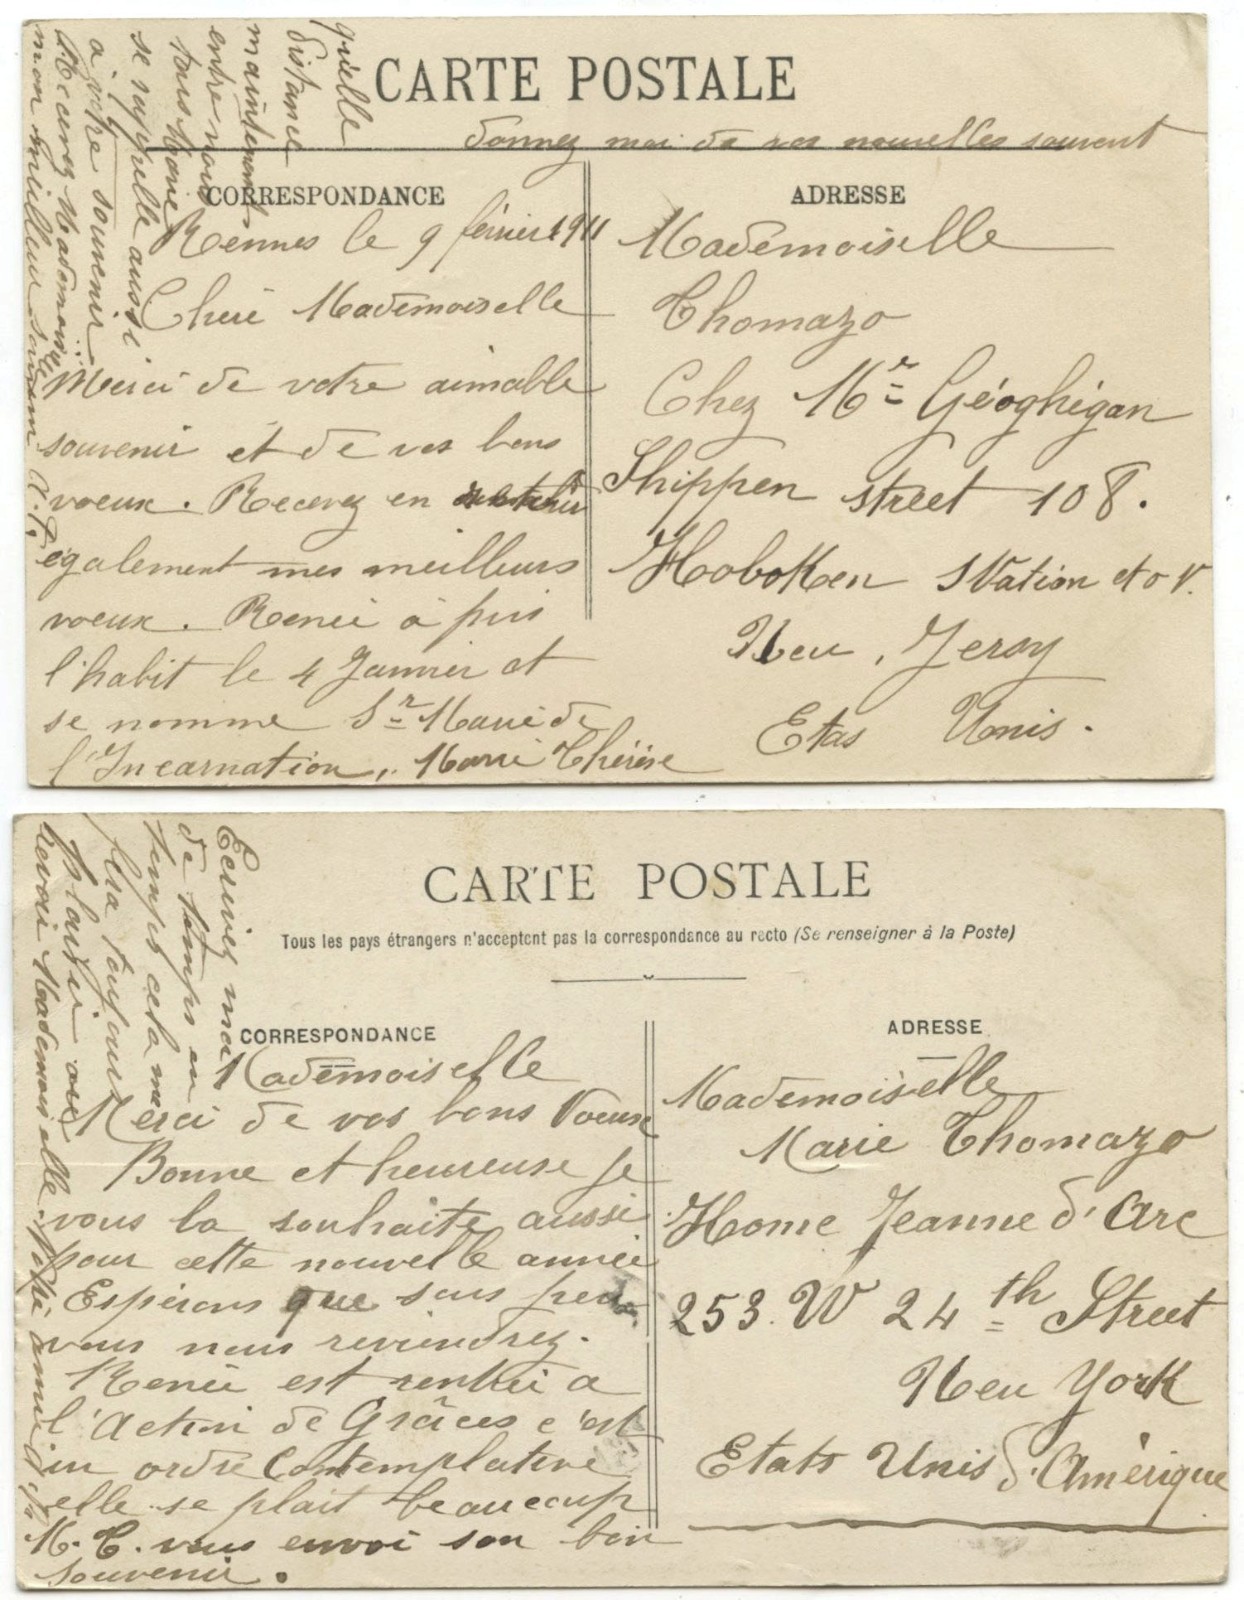 CARTE POSTALE
donnez moi de vos nouvelles souvent
CORRESPONDANCE
Rennes le 9 février 1911
Cheré Mademoiselle
Merci de votre aimable
souvenir et de vos bons
voeux. Recevez en
également mes meilleurs
voeux. Renée à pris
l'habit le 4 Janvier et
se nomme Sr Marie de
l'Incarnation, Marie Thérèse
quelle
distance
maintenant
entre nous
tous Marie
se rappelle aussi
à votre souvenir
Recevez Mademoiselle
mon meilleur
ADRESSE
Mademoiselle
Thomazo
Chez Mr Géoghégan
Shippen street 108.
Hoboken Station
New Jersy
Etas Unis.
CARTE POSTALE
Tous les pays étrangers n'acceptent pas la correspondance au recto (Se renseigner à la Poste)
CORRESPONDANCE
Mademoiselle
Merci de vos bons Voeux
Bonne et heureuse je
vous la souhaite aussi
pour cette nouvelle année
Espérons que sous peu
vous nous reviendrez.
Renée est rentrée a
l'Action de Grâces c'est
un ordre Contemplative
elle se plait beaucoup
M. T. vous envoi son bon
souvenir.
Ecrivez moi
de temps en
temps cela me
fera toujours
plaisir au
revoir Mademoiselle. Votre amie
ADRESSE
Mademoiselle
Marie Thomazo
Home Jeanne d'Arc
253. W 24th Street
New York
Etats Unis d'Amérique